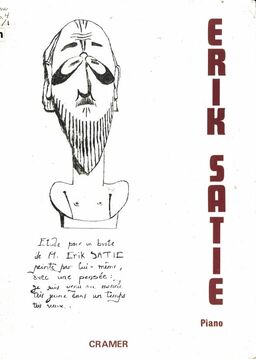 ERIK SATIE
Etude pour un buste
de M. Erik SATIE
peinte par lui-même,
avec une pensée:
je suis venu au monde
très jeune dans un temps
très vieux..
Piano
CRAMER